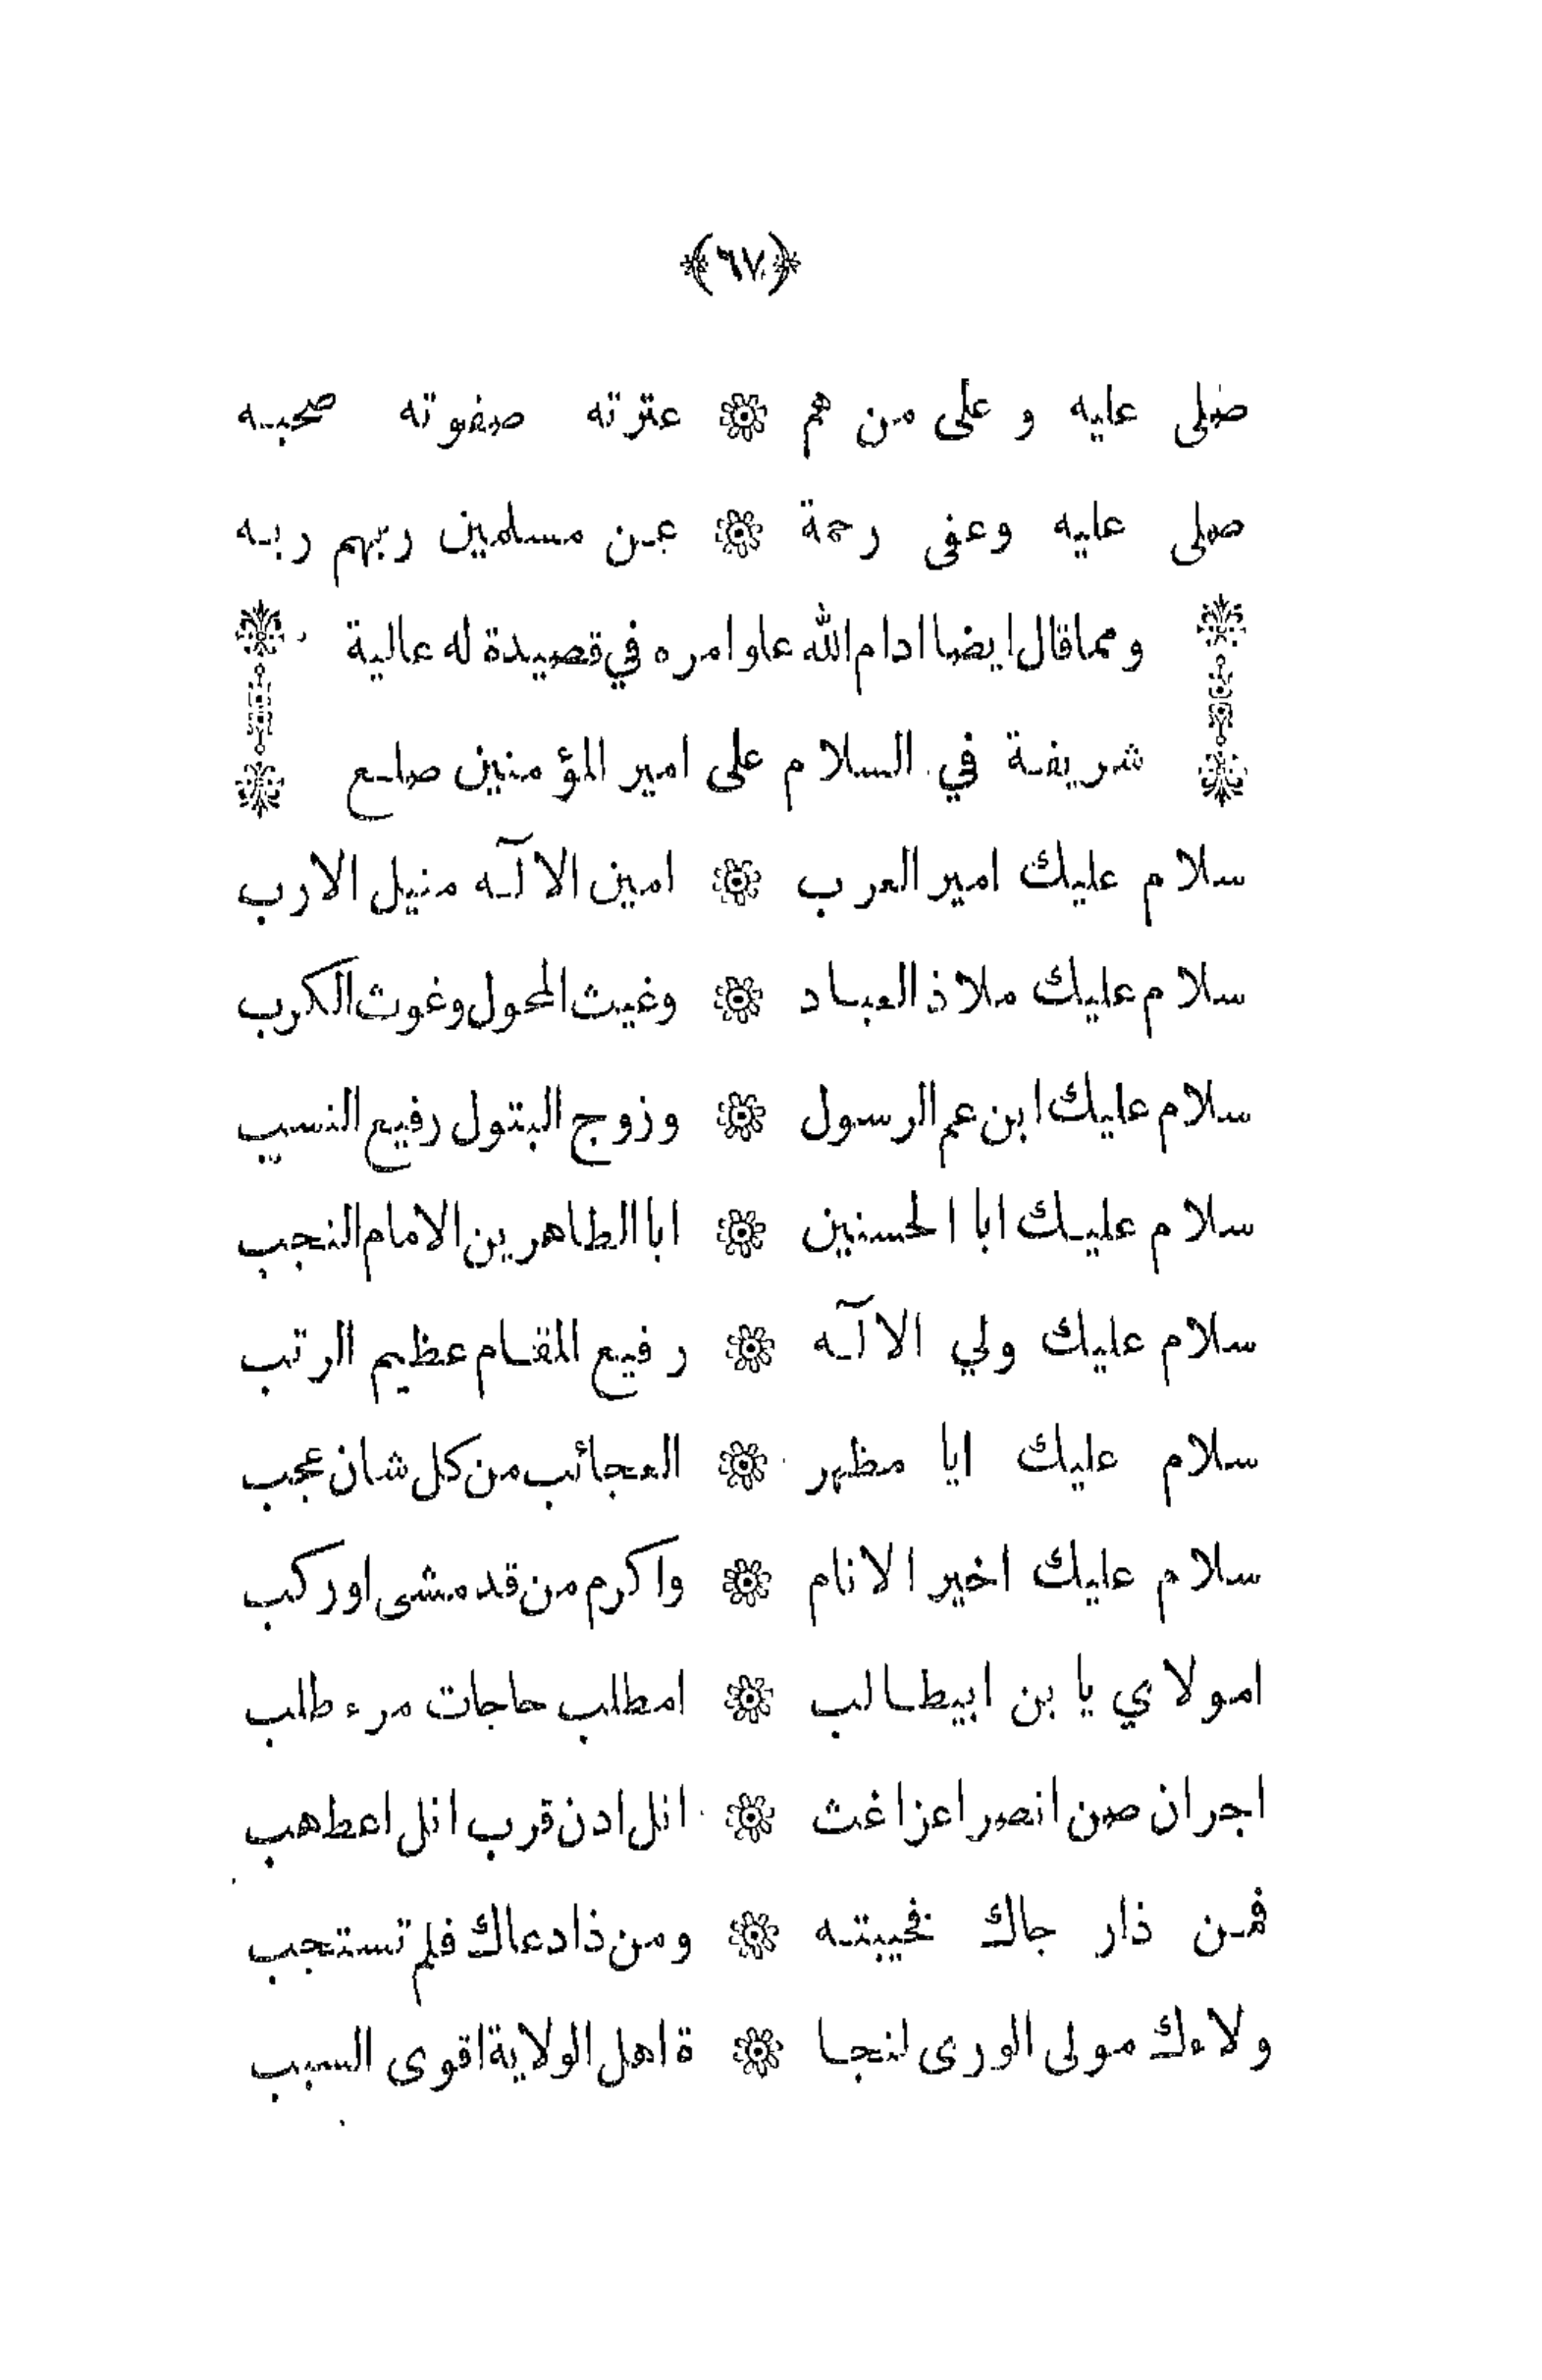 ﴿٦٧﴾
صلى عليه و على من هم ❁ عترته صفوته صحبه
صلى عليه وعفى رحمة ❁ عن مسلمين ربهم ربه
ومما قال ايضا ادام الله علو امره في قصيدة له عالية
شريفة في السلام على امير المؤمنين صلع
سلام عليك امير العرب ❁ امين الاآله منيل الارب
سلام عليك ملاذ العباد ❁ وغيث المحول وغوث الكرب
سلام عليك ابن عم الرسول ❁ وزوج البتول رفيع النسب
سلام عليك ابا الحسنين ❁ ابا الطاهرين الامام النجب
سلام عليك ولي الاآله ❁ رفيع المقام عظيم الرتب
سلام عليك ايا مظهر ❁ العجائب من كل شان عجب
سلام عليك اخير الانام ❁ واكرم من قد مشى او ركب
امولاي يا بن ابيطالب ❁ امطلب حاجات مرء طلب
اجر ان صن انصر اعز اغث ❁ انل ادن قرب انل اعط هب
فمن ذار جاك فخيبته ❁ ومن ذا دعاك فلم تستجب
ولاءك مولى الورى لنجا ❁ ة اهل الولاية اقوى السبب